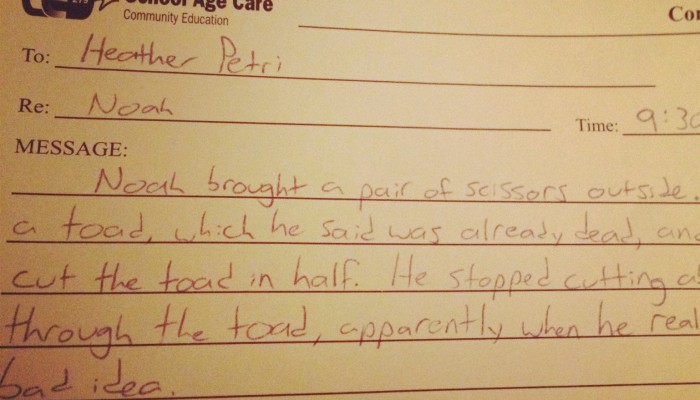 School Age Care
Community Education
To: Heather Petri
Re: Noah
Time: 9:30
MESSAGE:
Noah brought a pair of scissors outside.
a toad, which he said was already dead, and
cut the toad in half. He stopped cutting
through the toad, apparently when he
bad idea.